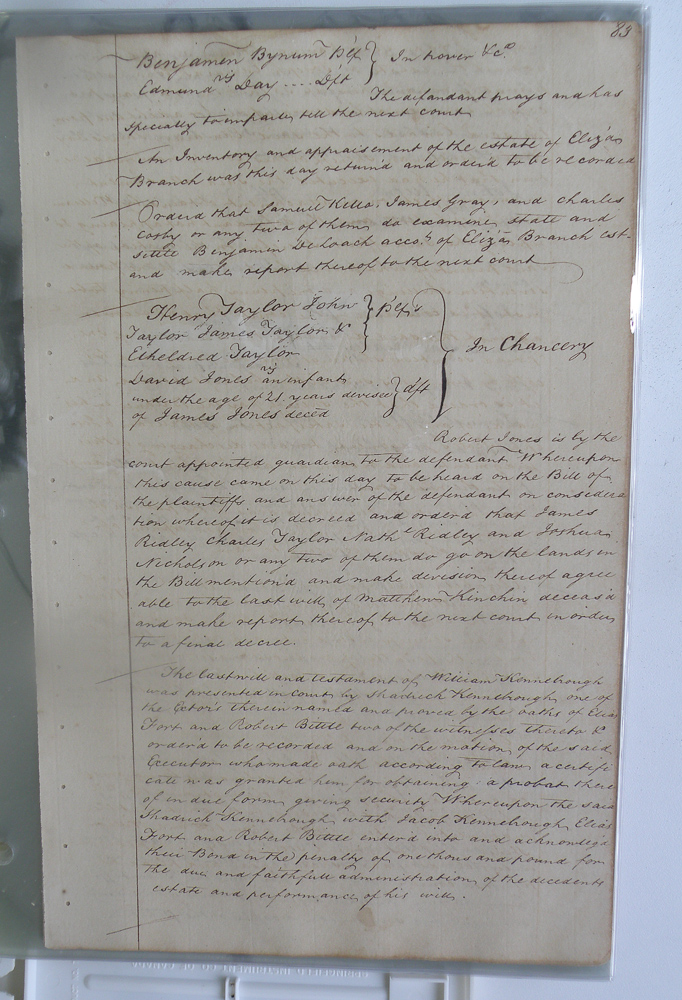 83
Benjamin Bynum Plf } In trover &c.a
vs
Edmund Day .... Dft
The defendant prays and has
specially to imparle till the next court
An Inventory and appraisement of the estate of Eliz.a
Branch was this day return'd and order'd to be recorded
Order'd that Samuel Kello, James Gray, and Charles
Cosby or any two of them do examine, state and
settle Benjamin DeLoach acco.t of Eliz.a Branch est
and make report thereof to the next court
Henry Taylor John
Taylor James Taylor & } Plfs
Etheldred Taylor
vs } In Chancery
David Jones an infant
under the age of 21 years devisee } dft
of James Jones deced
Robert Jones is by the
court appointed guardian to the defendant Whereupon
this cause came on this day to be heard on the Bill of
the plaintiffs and answer of the defendant on considera
tion whereof it is decreed and order'd that James
Ridley Charles Taylor Nath.l Ridley and Joshua
Nicholson or any two of them do go on the lands in
the Bill mention'd and make division thereof agree
able to the last will of Matthew Kinchin deceas'd
and make report thereof to the next court in order
to a final decree.
The last will and testament of William Kennebrough
was presented in court by Shadrich Kennebrough one of
the Extor's therein named and proved by the oaths of Elias
Fort and Robert Bittle two of the witnesses thereto &
order'd to be recorded and on the motion of the said
Executor who made oath according to law a certifi
cate was granted him for obtaining a probat there
of in due form giving security Whereupon the said
Shadrich Kennebrough with Jacob Kennebrough Elias
Fort and Robert Bittle enter'd into and acknowledg'd
their Bond in the penalty of one thousand pound for
the due and faithfull administration of the decedents
estate and performance of his will.